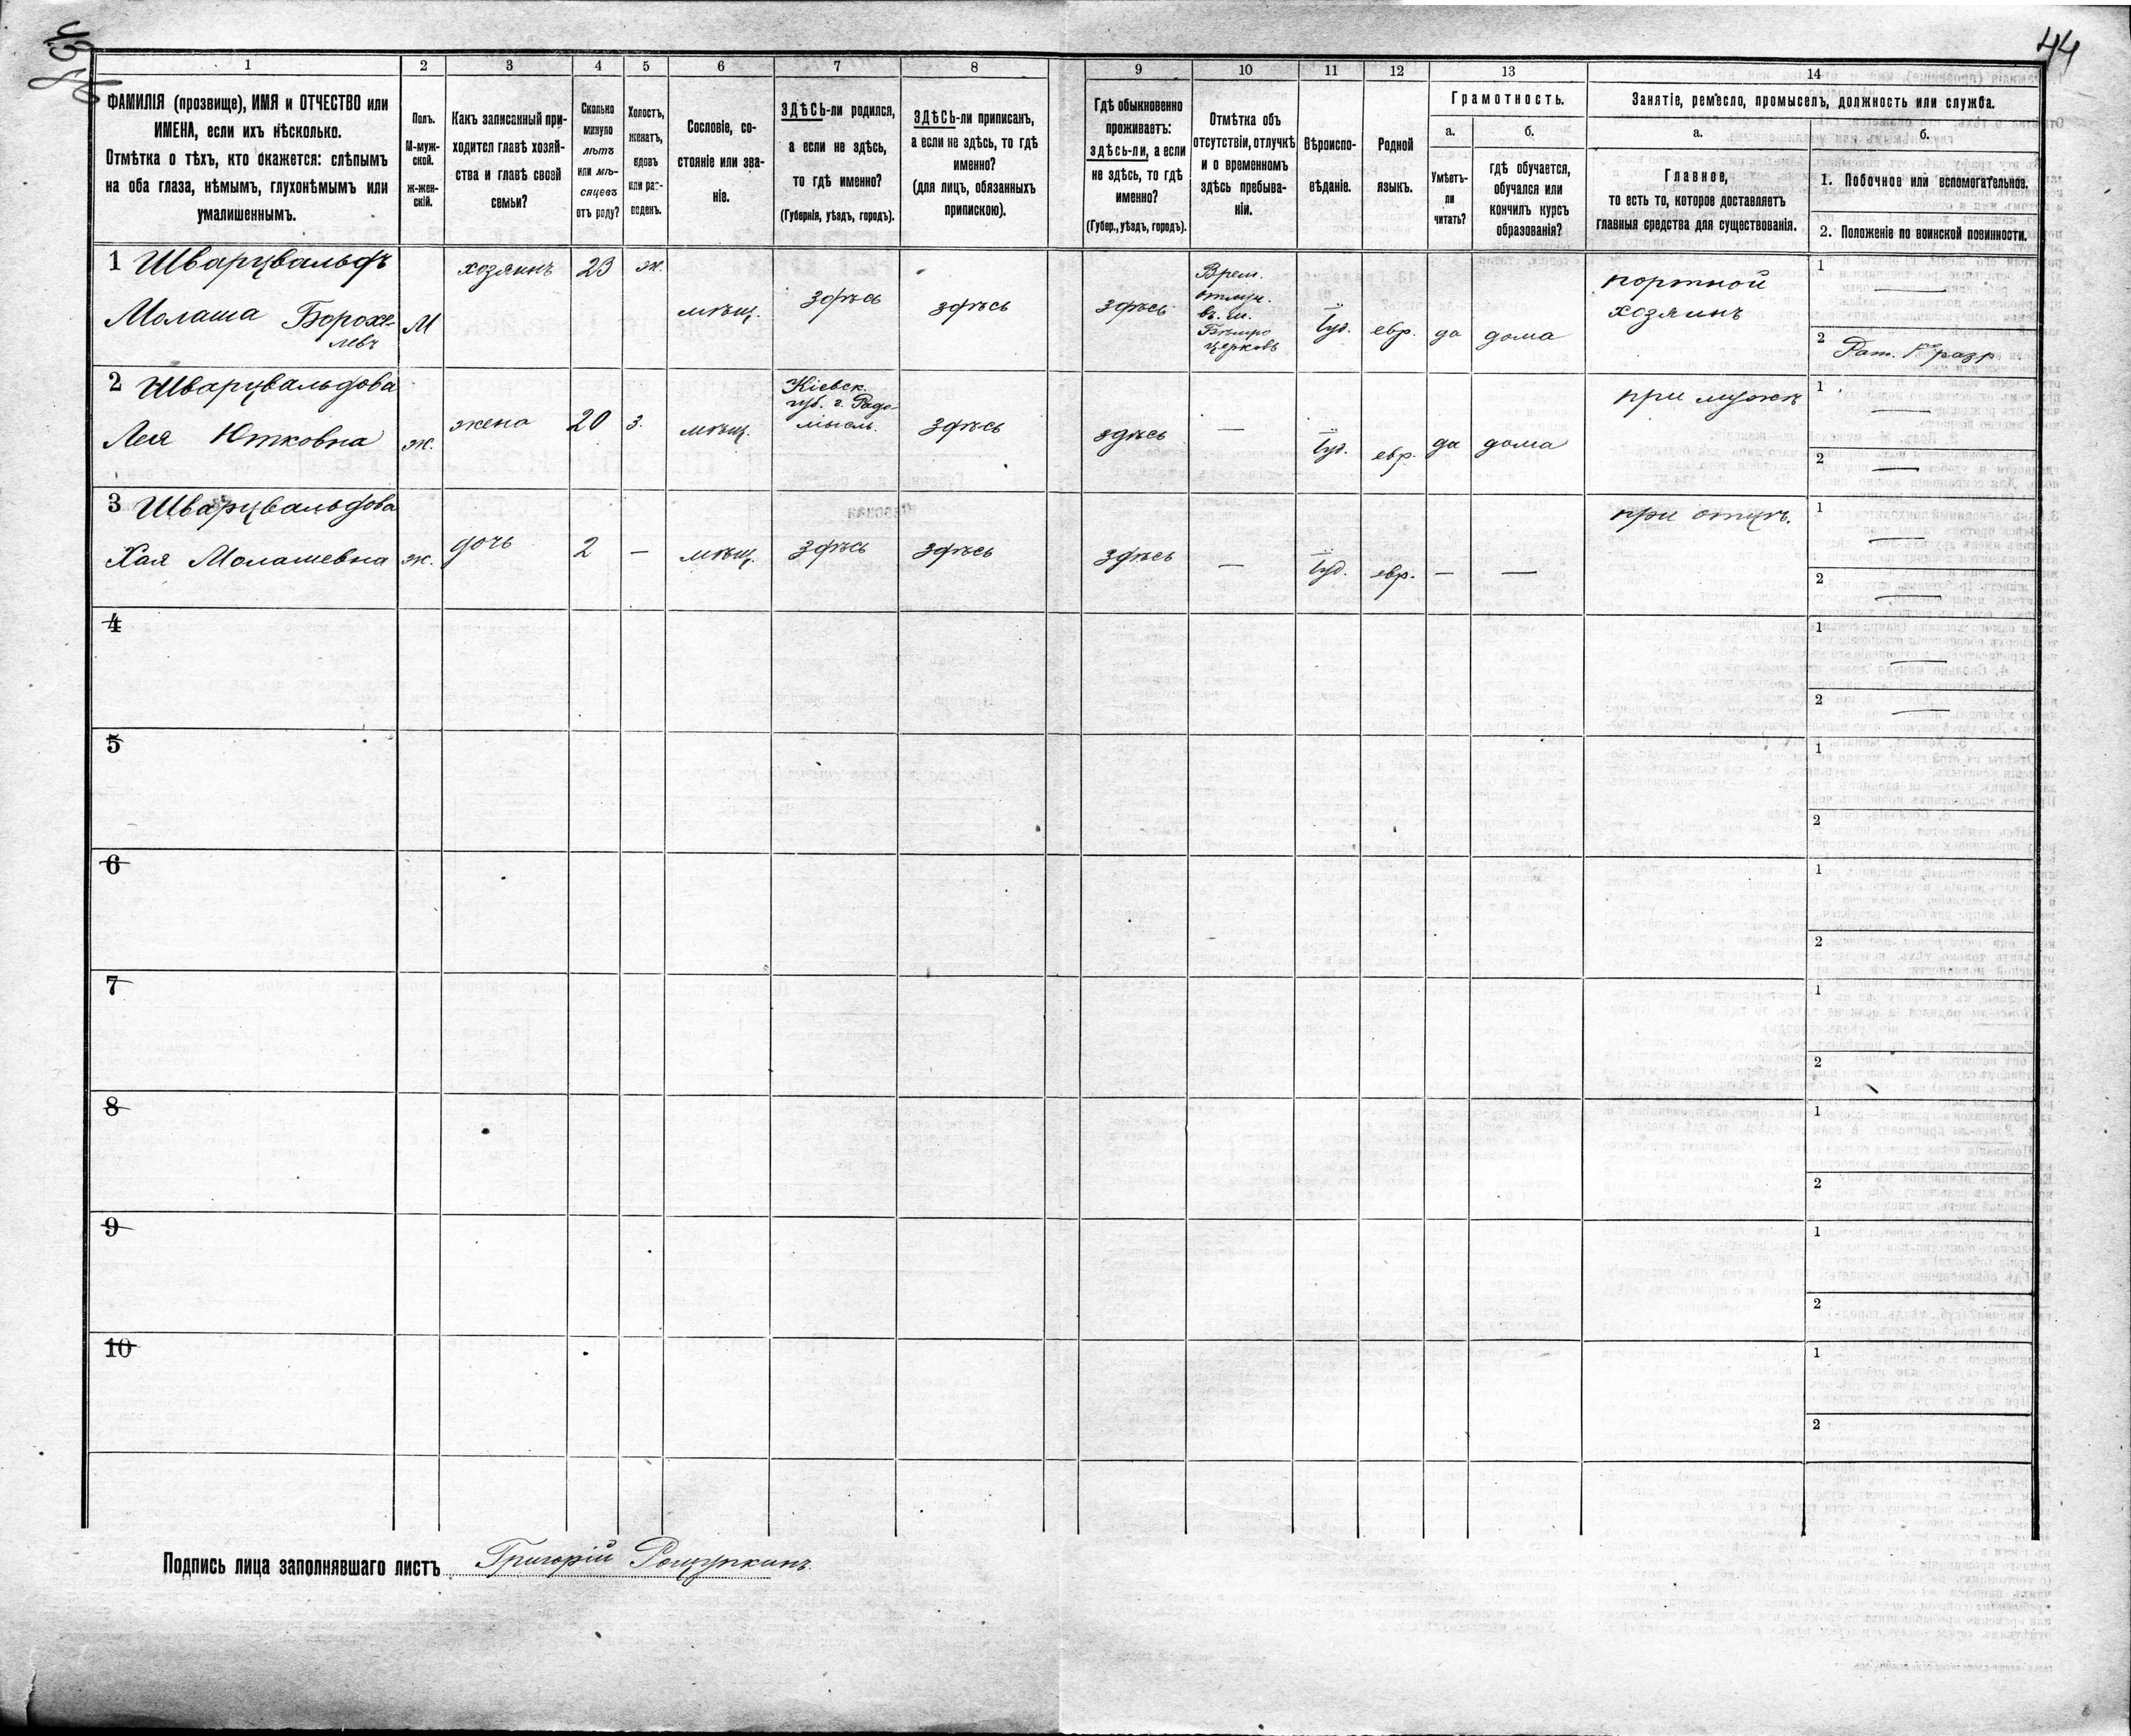 44
1 2 3 4 5 6 7 8 9 10 11 12 13 14
ФАМИЛІЯ (прозвище), ИМЯ и ОТЧЕСТВО или
ИМЕНА, если ихъ нѣсколько.
Отмѣтка о тѣхъ, кто окажется: слѣпымъ
на оба глаза, нѣмымъ, глухонѣмымъ или
умалишеннымъ.
Полъ.
М-муж-
ской.
ж-жен-
скій.
Какъ записанный при-
ходится главѣ хозяй-
ства и главѣ своей
семьи?
Сколько
минуло
лѣтъ
или мѣ-
сяцевъ
отъ роду?
Холостъ,
женатъ,
вдовъ
или раз-
веденъ.
Сословіе, со-
стояніе или зва-
ніе.
ЗДѢСЬ-ли родился,
а если не здѣсь,
то гдѣ именно?
(Губернія, уѣздъ, городъ).
ЗДѢСЬ-ли приписанъ,
а если не здѣсь, то гдѣ
именно?
(для лицъ, обязанныхъ
припискою).
Гдѣ обыкновенно
проживаетъ:
здѣсь-ли, а если
не здѣсь, то гдѣ
именно?
(Губер., уѣздъ, городъ).
Отмѣтка объ
отсутствіи, отлучкѣ
и о временномъ
здѣсь пребыва-
ніи.
Вѣроиспо-
вѣданіе.
Родной
языкъ.
Грамотность.
а.
Умѣетъ-
ли
читать?
б.
гдѣ обучается,
обучался или
кончилъ курсъ
образованія?
Занятіе, ремесло, промыселъ, должность или служба.
а.
Главное,
то есть то, которое доставляетъ
главныя средства для существованія.
б.
1. Побочное или вспомогательное.
2. Положеніе по воинской повинности.
1 Шварцвальдъ
Молаша Борохе-
левъ
М
хозяинъ
23
ж.
мѣщ.
здѣсь
здѣсь
здѣсь
Врем.
отлуч.
въ
церковь
Іуд.
евр.
да
дома
портной
хозяинъ
1 —
2 Рат. разр
2 Шварцвальдова
Лея Ютковна
ж.
жена
20
з.
мѣщ.
Кіевск.
губ. г. Радо-
мысль.
здѣсь
здѣсь
—
Іуд.
евр.
да
дома
при мужѣ
1 —
2 —
3 Шварцвальдова
Хая Молашевна
ж.
дочь
2
—
мѣщ.
здѣсь
здѣсь
здѣсь
—
Іуд.
евр.
—
—
при отцѣ.
1 —
2 —
4
1 —
2 —
5
1
2
6
1
2
7
1
2
8
1
2
9
1
2
10
1
2
Подпись лица заполнявшаго листъ Григорій Рощупкинъ.